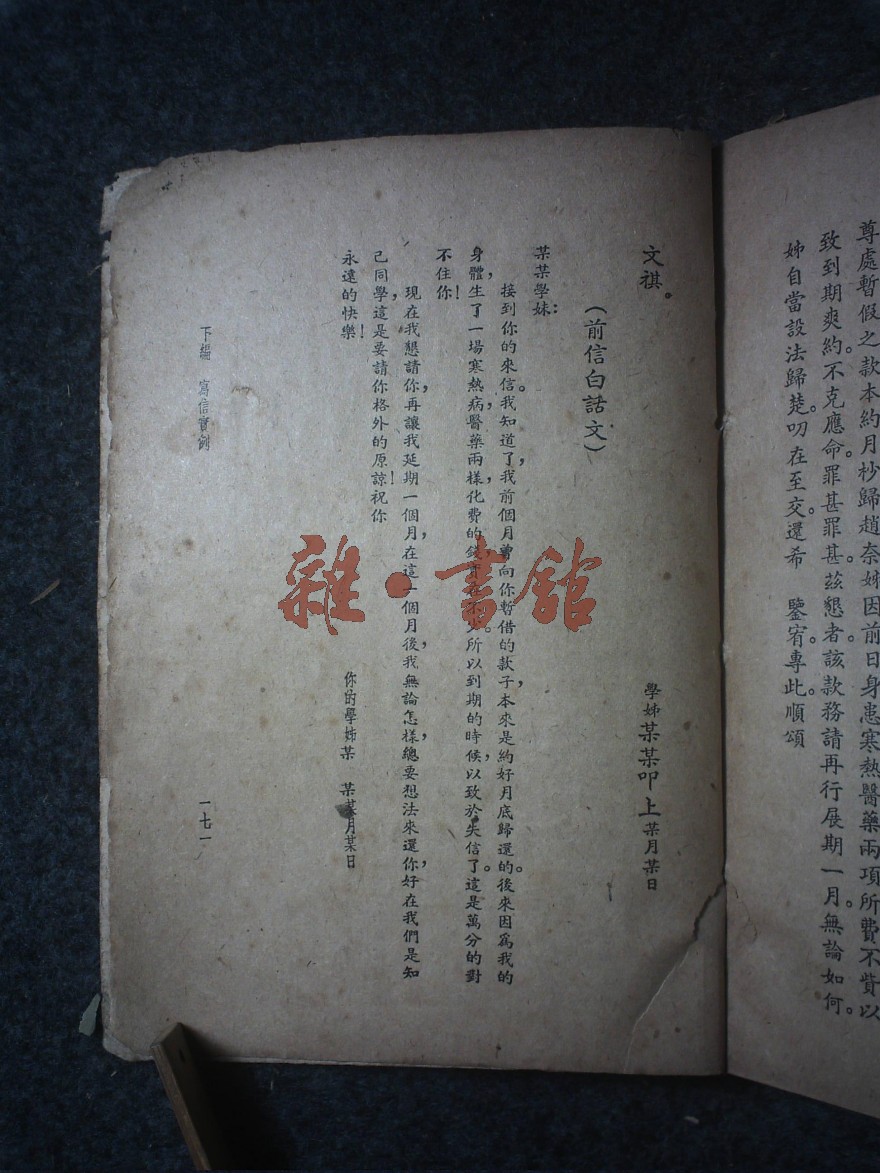 尊處暫假之款本約月杪歸趙奈姊因前日身患寒熱醫藥兩項所費不貲以
致到期爽約。不克應命。罪甚罪甚。茲懇者。該款務請再行展期一月。無論如何。
姊自當設法歸楚。叨在至交。還希 鑒宥。專此。順頌
文祺。
學姊某某叩上某月某日
(前信白話文)
某某學妹：
接到你的來信。我知道了，我前個月曾向你暫借的款子本來是約好月底歸還的。後來因爲我的
身體，生了一場寒熱病，醫藥兩樣，化費的錢實在不少。所以到期的時候，以致於失信了。這是萬分的對
不住你！
現在我懇請你，再讓我延期一個月，在這一個月後，我無論怎樣，總要想法來還你，好在我們是知
己同學，這是要請你格外的原諒！祝你
永遠的快樂！
你的學姊某 某某月某日
下編 寫信實例
一七一
雜·書館